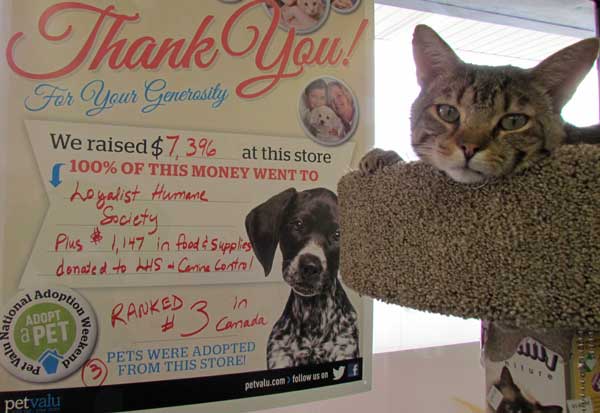 Thank You!
For Your Generosity
We raised $7,396 at this store
100% OF THIS MONEY WENT TO
Loyalist Humane
Society
Plus $1,147 in food & supplies
donated to LHS & Canine Control
RANKED
# 3 in
Canada
3 PETS WERE ADOPTED
FROM THIS STORE!
Pet Valu National Adoption Weekend
ADOPT
a PET
petvalu
petvalu.com > follow us on